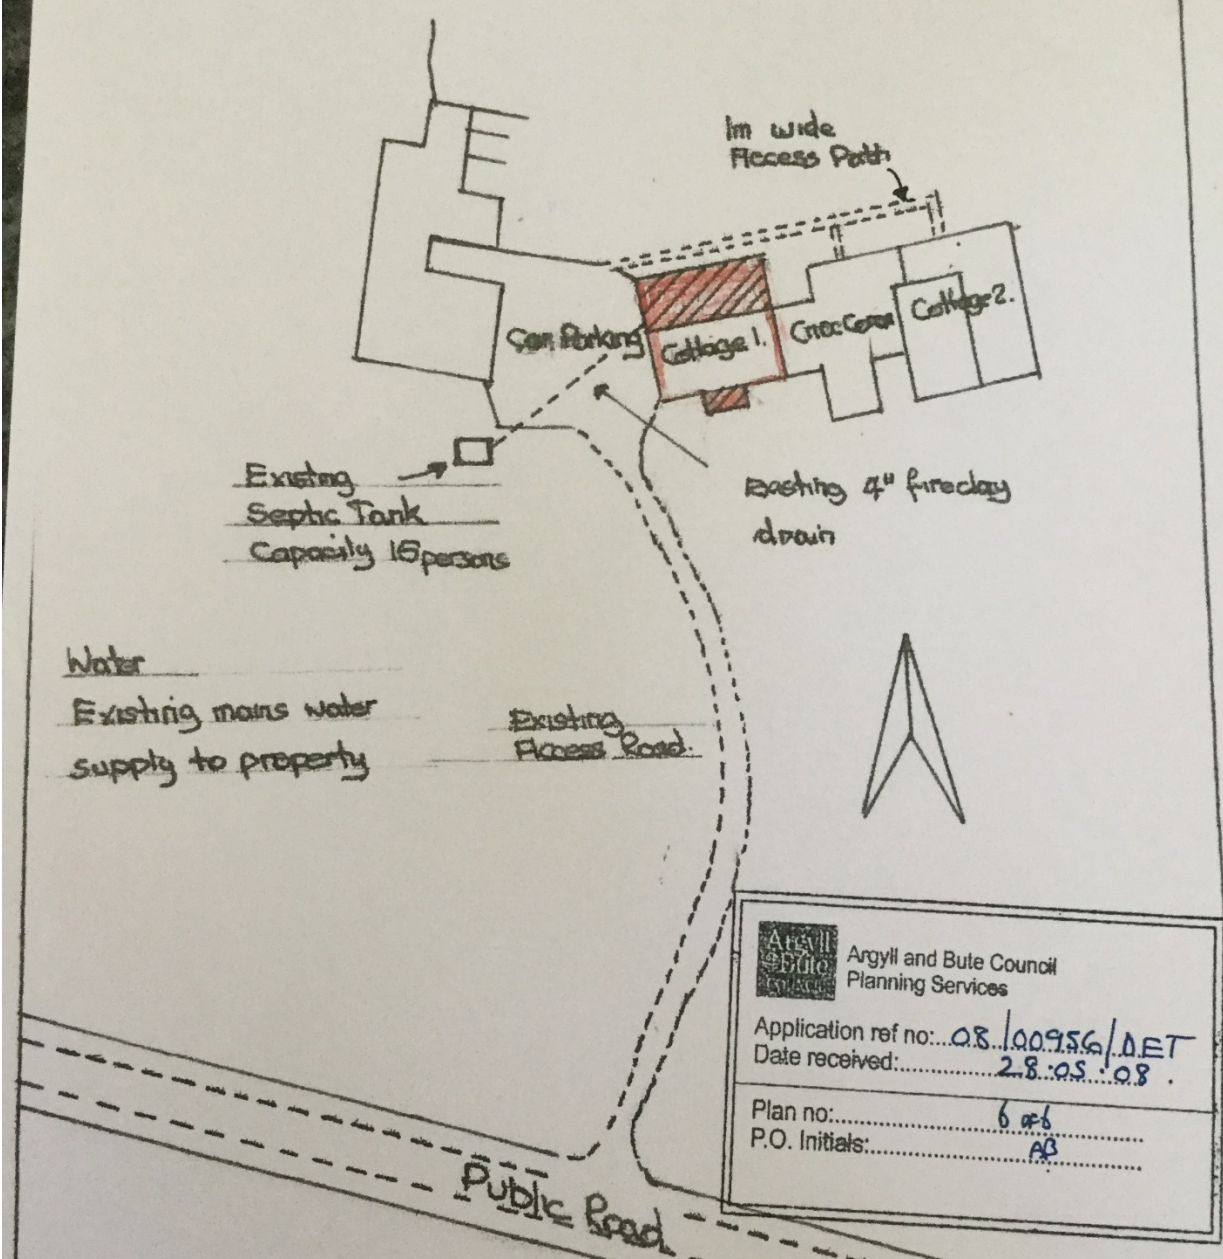 1m wide
Access Path
Car Parking
Cottage 1.
Cottage 2.
Existing
Septic Tank
Capacity 15 persons
Existing 4" fireclay
drain
Water
Existing mains water
supply to property
Existing
Access Road.
Public Road
Argyll
Bute
Argyll and Bute Council
Planning Services
Application ref no: 08/00956/DET
Date received: 28.05.08.
Plan no: 6 of 6
P.O. Initials: AB